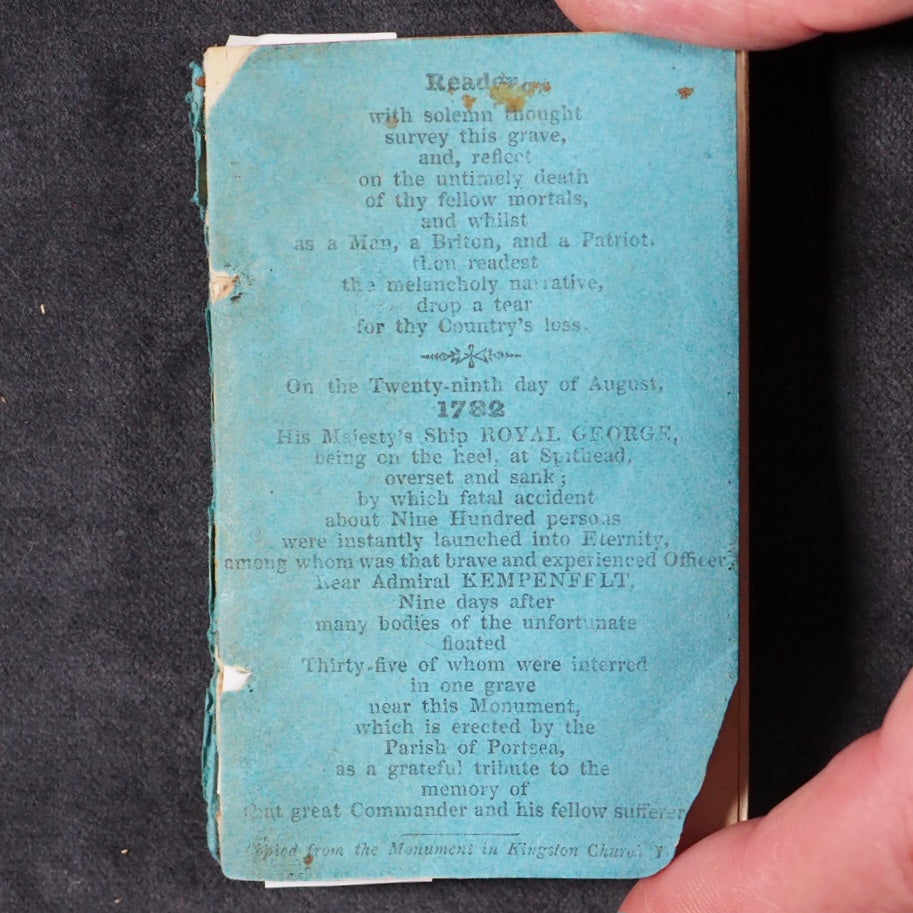 Reader
with solemn thought
survey this grave,
and, reflect
on the untimely death
of thy fellow mortals,
and whilst
as a Man, a Briton, and a Patriot.
thou readest
the melancholy narrative,
drop a tear
for thy Country's loss.
On the Twenty-ninth day of August,
1782
His Majesty's Ship ROYAL GEORGE,
being on the heel, at Spithead,
overset and sank;
by which fatal accident
about Nine Hundred persons
were instantly launched into Eternity,
among whom was that brave and experienced Officer,
Rear Admiral KEMPENFELT.
Nine days after
many bodies of the unfortunate
floated
Thirty-five of whom were interred
in one grave
near this Monument,
which is erected by the
Parish of Portsea,
as a grateful tribute to the
memory of
that great Commander and his fellow sufferer
Copied from the Monument in Kingston Church